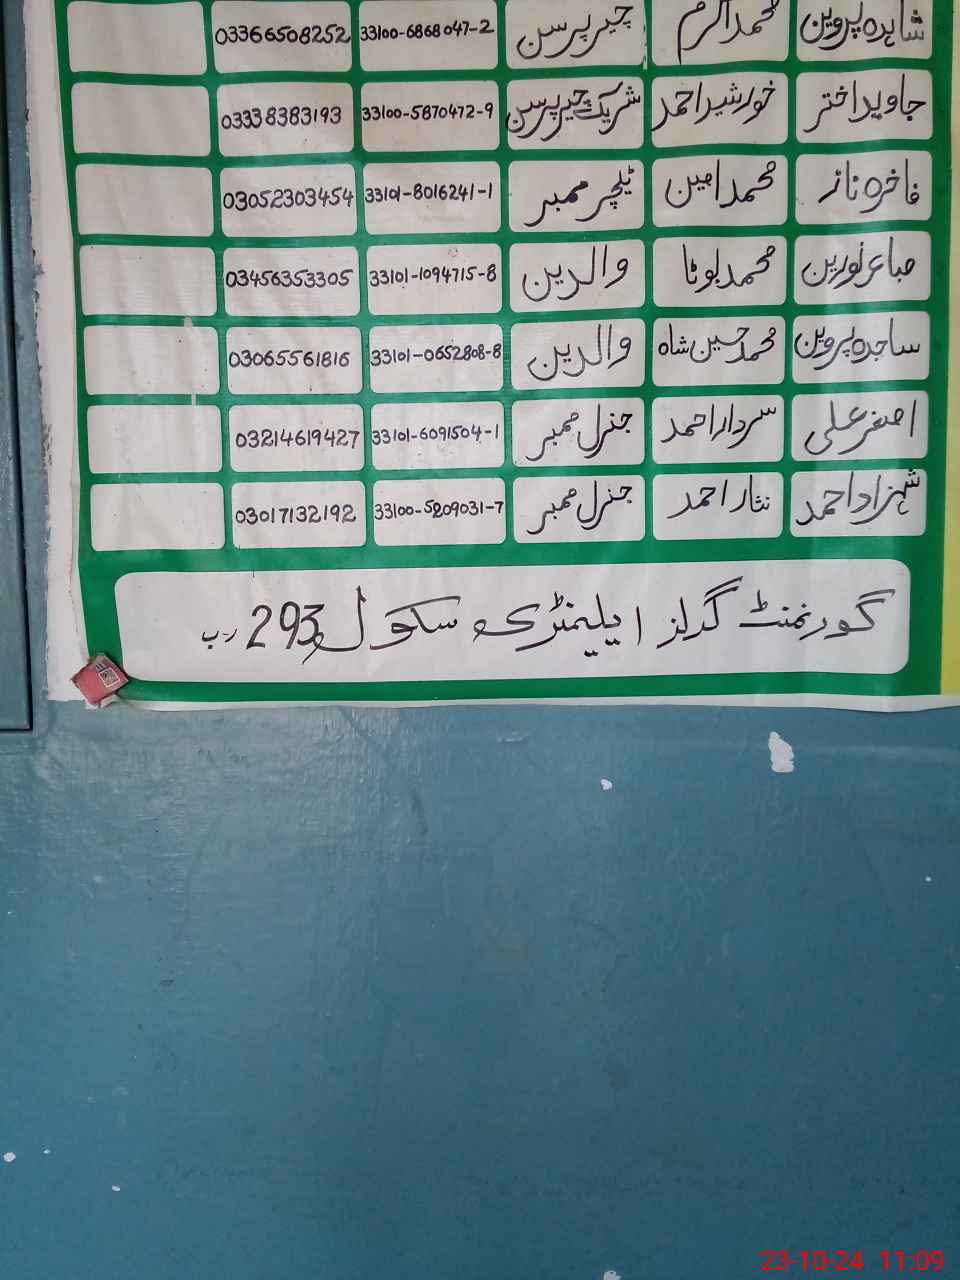 شاہدہ پروین محمد اکرم چیرپرسن 33100-6868047-2 03366508252
جاوید اختر خورشید احمد شریک چیرپرسن 33100-5870472-9 03338383193
فاخرہ ناز محمد امین ٹیچر ممبر 33101-8016241-1 03052303454
صباء نورین محمد بوٹا والدین 33101-1094715-8 03456353305
ساجدہ پروین محمد حسین شاہ والدین 33101-0652808-8 03065561816
اصغر علی سردار احمد جنرل ممبر 33101-6091504-1 03214619427
شہزاد احمد نثار احمد جنرل ممبر 33100-5209031-7 03017132192
گورنمنٹ گرلز ایلیمنٹری سکول 293 ر۔ب
23-10-24 11:09